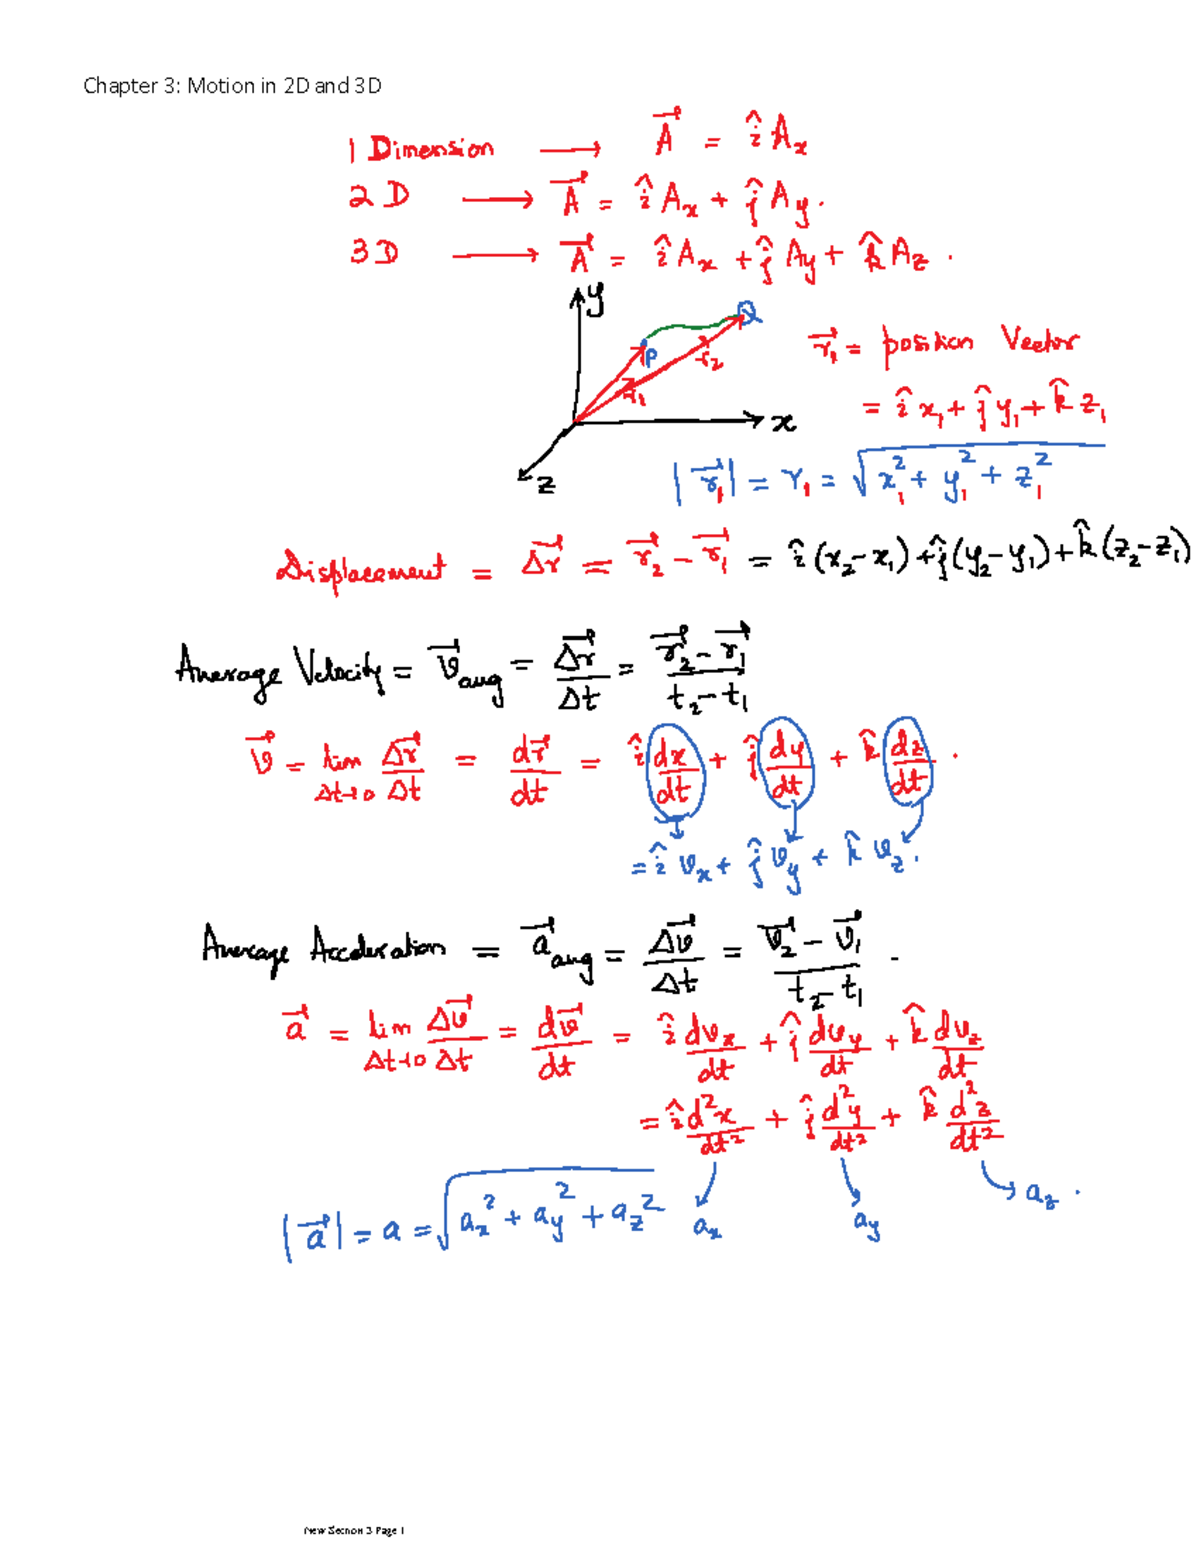 Chapter 3: Motion in 2D and 3D
1 Dimension ⟶ A⃗ = î Aₓ
2 D ⟶ A⃗ = î Aₓ + ĵ A_y .
3 D ⟶ A⃗ = î Aₓ + ĵ A_y + k̂ A_z .
y
Q
P
r₂
r₁
x
z
r⃗₁ = position Vector
= î x₁ + ĵ y₁ + k̂ z₁
|r⃗₁| = r₁ = √(x₁² + y₁² + z₁²)
Displacement = Δr⃗ = r⃗₂ − r⃗₁ = î (x₂ − x₁) + ĵ (y₂ − y₁) + k̂ (z₂ − z₁)
Average Velocity = v⃗_avg = Δr⃗/Δt = (r⃗₂ − r⃗₁)/(t₂ − t₁)
v⃗ = lim Δt→0 Δr⃗/Δt = dr⃗/dt = î dx/dt + ĵ dy/dt + k̂ dz/dt .
= î vₓ + ĵ v_y + k̂ v_z .
Average Acceleration = a⃗_avg = Δv⃗/Δt = (v⃗₂ − v⃗₁)/(t₂ − t₁) .
a⃗ = lim Δt→0 Δv⃗/Δt = dv⃗/dt = î dvₓ/dt + ĵ dv_y/dt + k̂ dv_z/dt
= î d²x/dt² + ĵ d²y/dt² + k̂ d²z/dt²
|a⃗| = a = √(aₓ² + a_y² + a_z²)
aₓ a_y a_z .
New Section 3 Page 1